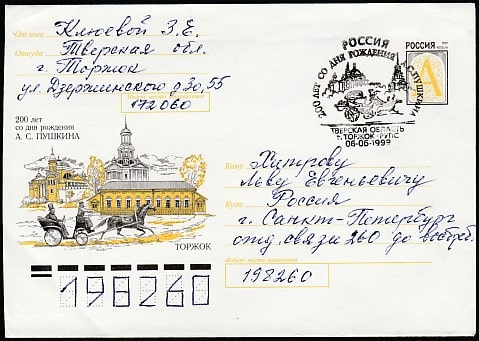 От кого Клюевой З.Е.
Откуда Тверская обл.
г. Торжок
ул. Дзержинского д 30, 55
172060
200 лет
со дня рождения
А. С. ПУШКИНА
ТОРЖОК
РОССИЯ
200 ЛЕТ СО ДНЯ РОЖДЕНИЯ А.С.ПУШКИНА
ТВЕРСКАЯ ОБЛАСТЬ
г. ТОРЖОК-РУПС
06-06-1999
РОССИЯ
А
Кому Хитрову
Льву Евгеньевичу
Куда Россия
г. Санкт-Петербург
отд. связи 260 до востреб.
Индекс места назначения
198260
198260